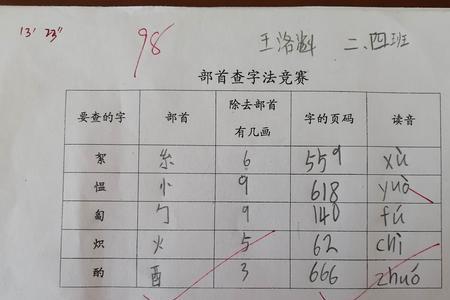 13' 23"
98
王洛 二、四班
部首查字法竞赛
要查的字 部首 除去部首有几画 字的页码 读音
絮 糸 6 559 xù
愠 忄 9 618 yuò
匐 勹 9 140 fú
炽 火 5 62 chì
酌 酉 3 666 zhuó